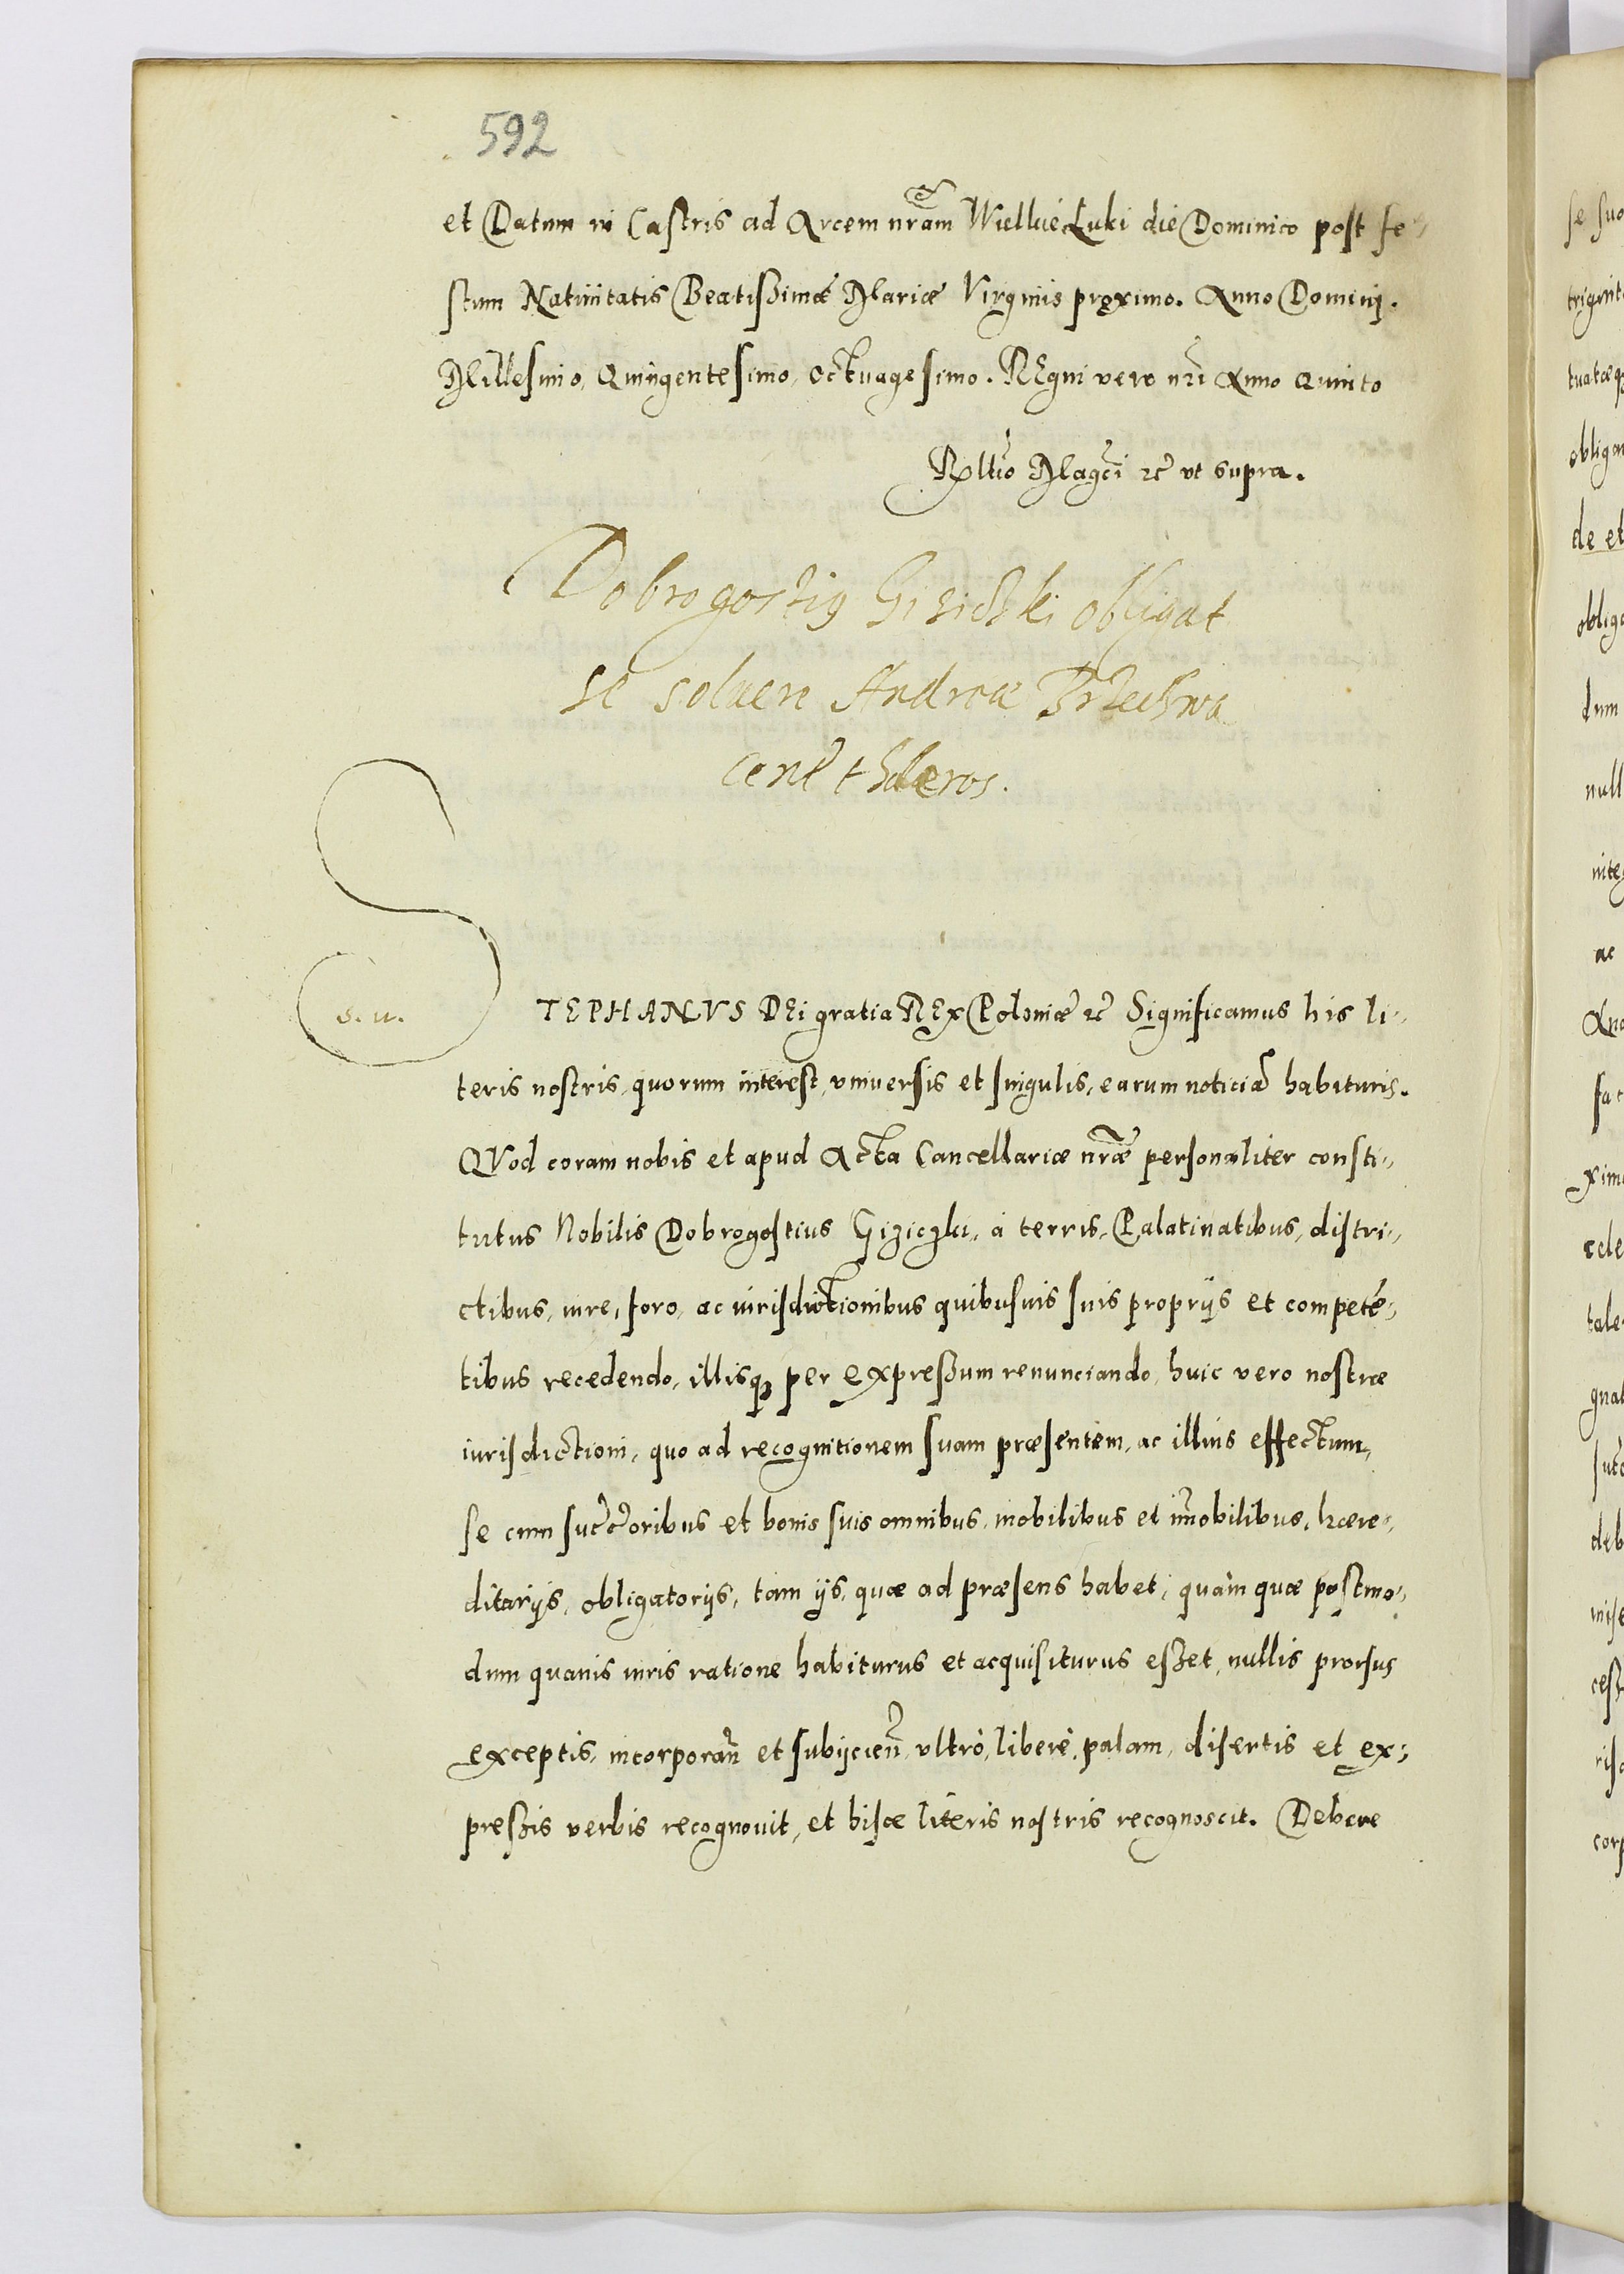 592
et Datum in Castris ad Arcem nram Wielkie Luki die Dominico post fe-
stum Natiuitatis Beatissimæ Mariæ Virginis proximo. Anno Dominij.
Millesimo, Quingentesimo, octuagesimo. REgni vero nri Anno Quinto
Rltio Magci &c ut supra.
Dobrogostius Gizicski obligat
se soluere Andreæ Brzechwa
cent thaleros.
S. u.
STEPHANVS DEi gratia REx Poloniæ &c Significamus his li-
teris nostris, quorum interest, vniuersis et singulis, earum noticiã habituris.
QVod coram nobis et apud Acta Cancellariæ nræ personaliter consti-
tutus Nobilis Dobrogostius Giziczki, à terris, Palatinatibus, distri-
ctibus, iure, foro, ac iurisdictionibus quibusuis suis propriis et competẽ-
tibus recedendo, illisq; per expressum renunciando, huic vero nostræ
iurisdictioni, quo ad recognitionem suam præsentem, ac illius effectum,
se cum succoribus et bonis suis omnibus, mobilibus et imobilibus, hære-
ditarijs, obligatorijs, tam ijs, quæ ad præsens habet, quàm quæ postmo-
dum quauis iuris ratione habiturus et acquisiturus esset, nullis prorsus
exceptis, incorporan et subijcien, vltrò, liberè, palam, disertis et ex-
pressis verbis recognouit, et hisce literis nostris recognoscit. Debere